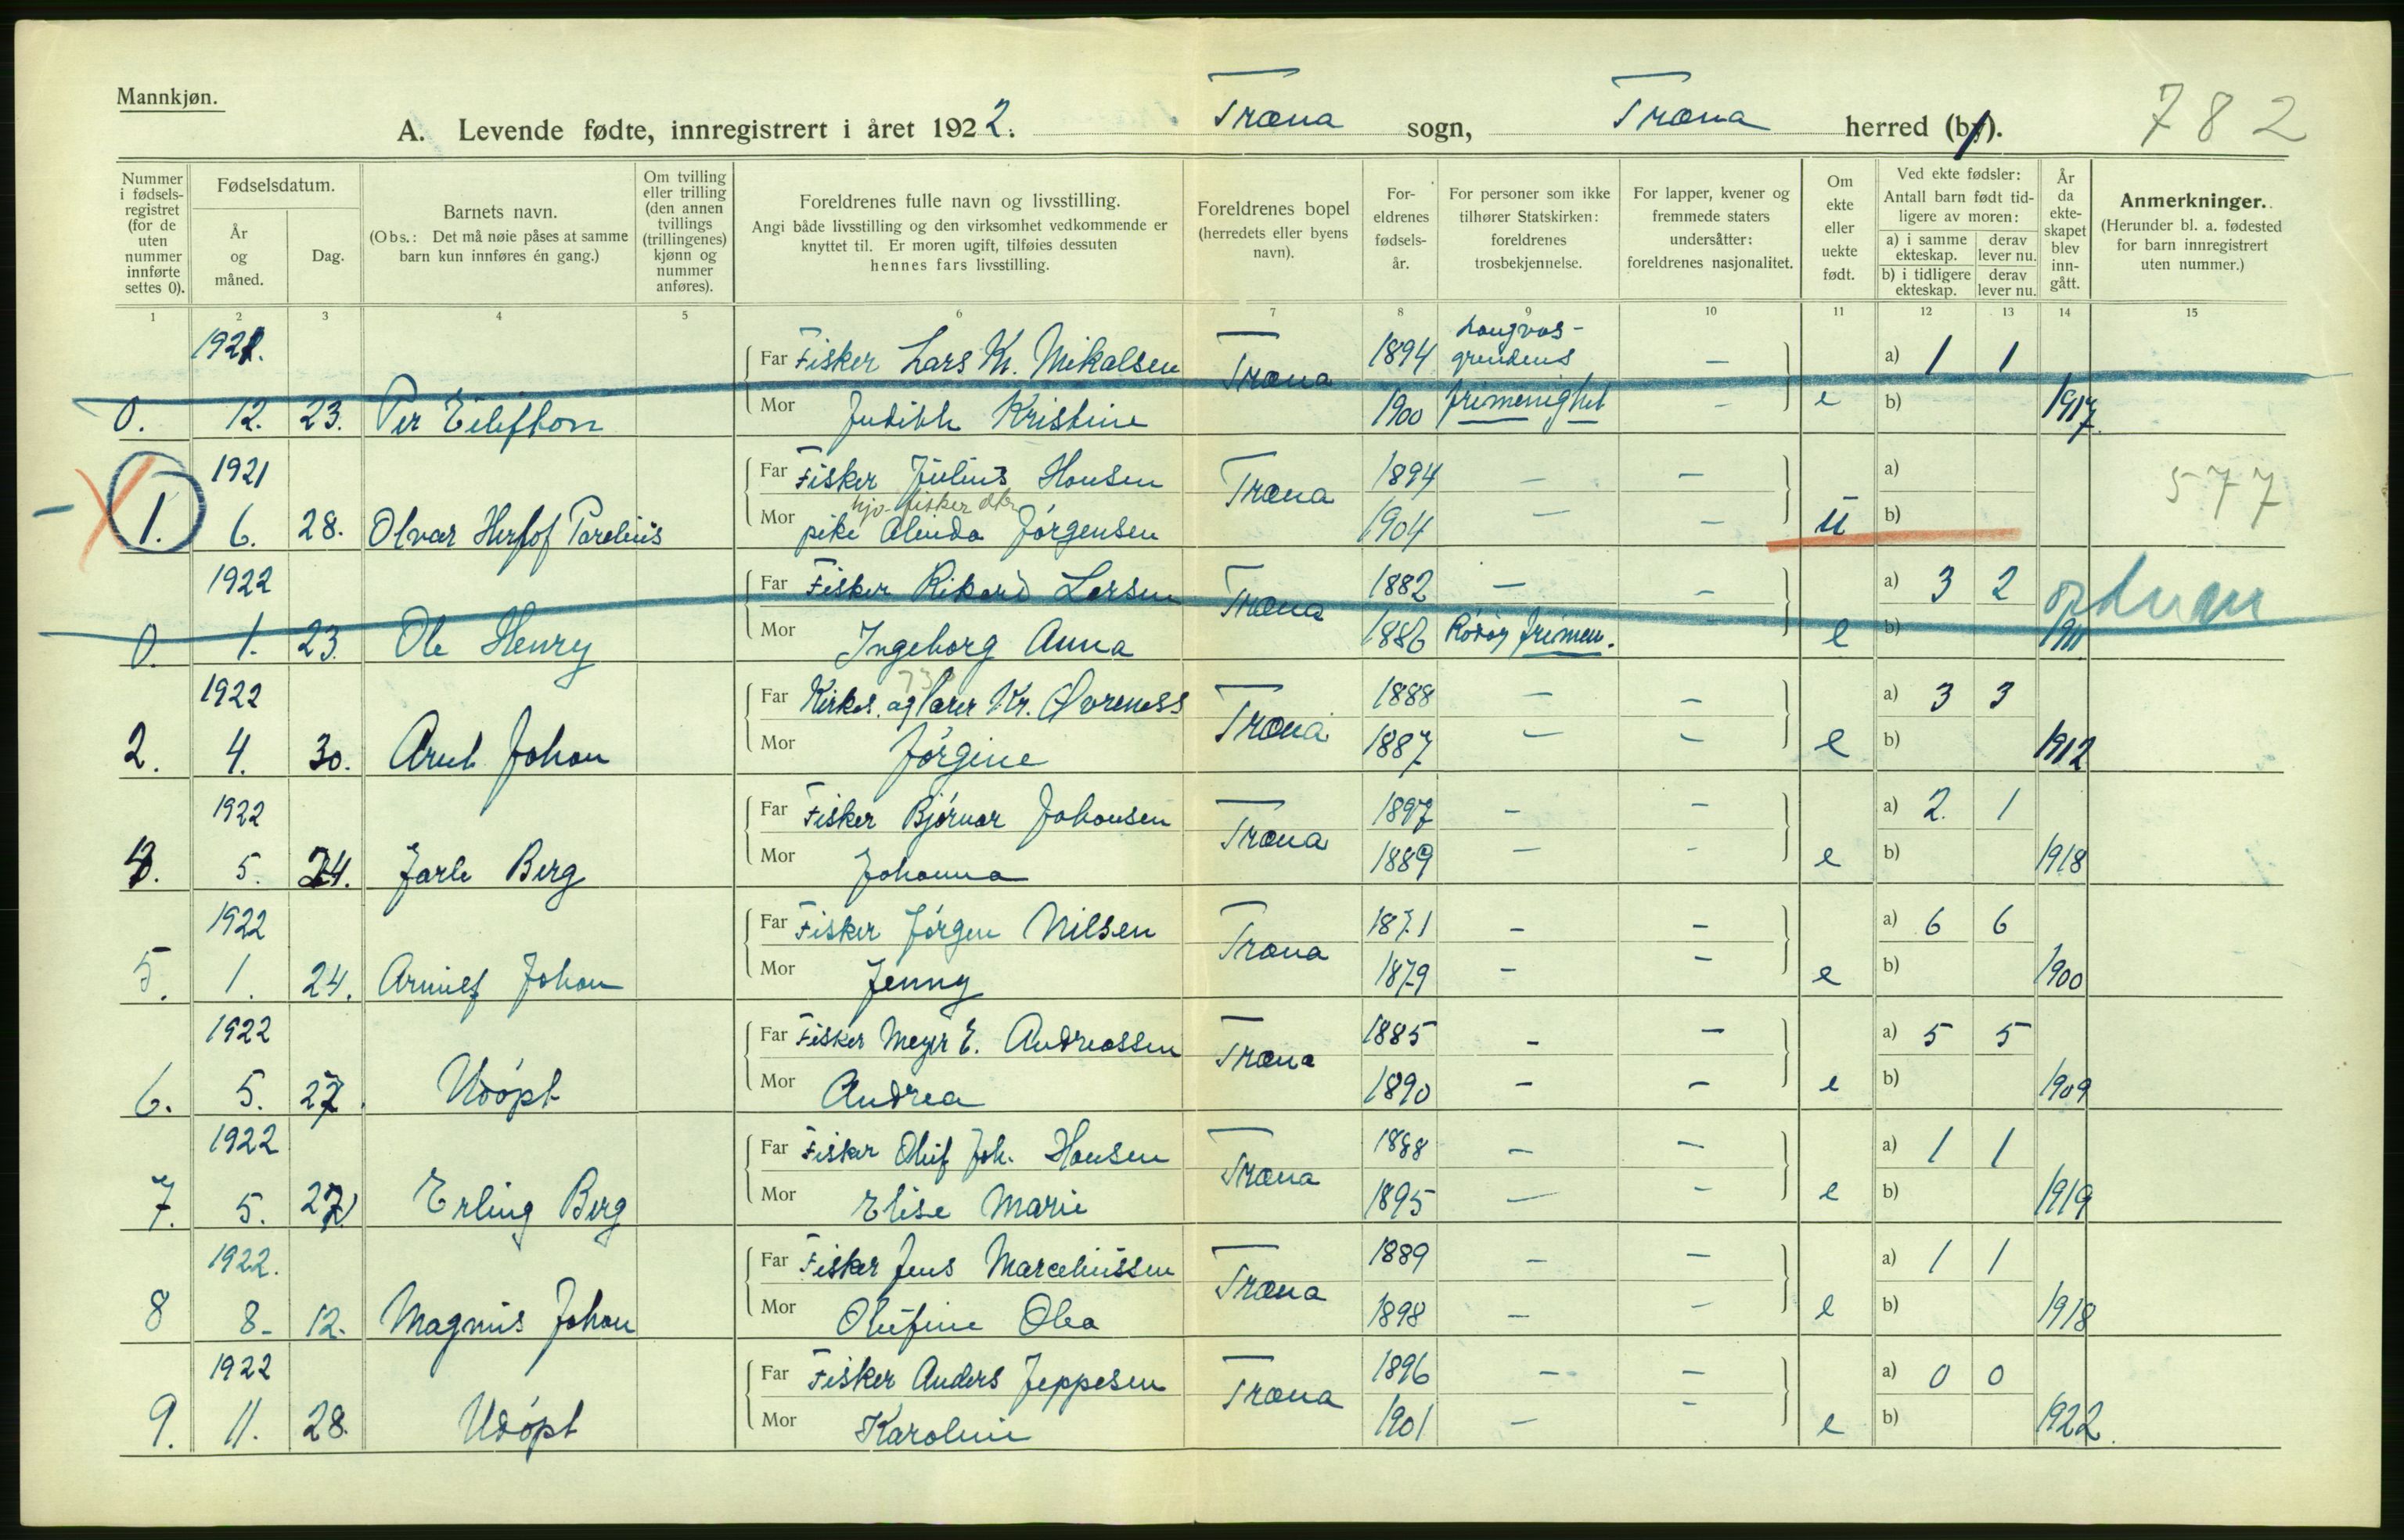 Mannkjøn.
A. Levende fødte, innregistrert i året 1922. Træna sogn, Træna herred (by). 782
Nummer i fødsels-registret (for de uten nummer innførte settes 0).
Fødselsdatum.
År og måned.
Dag.
Barnets navn.
(Obs.: Det må nøie påses at samme barn kun innføres én gang.)
Om tvilling eller trilling (den annen tvillings (trillingenes) kjønn og nummer anføres).
Foreldrenes fulle navn og livsstilling.
Angi både livsstilling og den virksomhet vedkommende er knyttet til. Er moren ugift, tilføies dessuten hennes fars livsstilling.
Foreldrenes bopel (herredets eller byens navn).
For-eldrenes fødsels-år.
For personer som ikke tilhører Statskirken: foreldrenes trosbekjennelse.
For lapper, kvener og fremmede staters undersåtter: foreldrenes nasjonalitet.
Om ekte eller uekte født.
Ved ekte fødsler: Antall barn født tid-ligere av moren:
a) i samme ekteskap. derav lever nu.
b) i tidligere ekteskap. derav lever nu.
År da ekte-skapet blev inn-gått.
Anmerkninger.
(Herunder bl. a. fødested for barn innregistrert uten nummer.)
1 2 3 4 5 6 7 8 9 10 11 12 13 14 15
1921. Far Fisker Lars Kr. Mikalsen Træna 1894 – a) 1 1
0. 12. 23. Per Mor Judith Kristine 1900 frimenighet – e b) 1917
1921 Far Fisker Julius Hansen Træna 1894 – – a) 577
hjv. fisker dtr
1. 6. 28. Olvar Herlof Parelius Mor pike Alinda Jørgensen 1904 – – u b)
1922 Far Fisker Rikard Larsen Træna 1882 – – a) 3 2
0. 1. 23. Ole Henry Mor Ingeborg Anna 1886 Rödöy frimen. – e b) 1911
1922 Far Kirkes. og lærer Kr. Øvreness Træna 1888 – – a) 3 3
2. 4. 30. Arnt Johan Mor Jörgine 1887 – – e b) 1912
1922 Far Fisker Bjørnar Johansen Træna 1897 – – a) 2. 1
4. 5. 24. Jarle Berg Mor Johanna 1889 – – e b) 1918
1922 Far Fisker Jörgen Nilsen Træna 1871 – – a) 6 6
5. 1. 24. Arnulf Johan Mor Jenny 1879 – – e b) 1900
1922 Far Fisker Meyer E. Andreassen Træna 1885 – – a) 5 5
6. 5. 27. Udöpt Mor Andrea 1890 – – e b) 1909
1922 Far Fisker Oluf Joh. Hansen Træna 1888 – – a) 1 1
7. 5. 27. Erling Berg Mor Elise Marie 1895 – – e b) 1919
1922. Far Fisker Jens Marceliussen Træna 1889 – – a) 1 1
8 8. 12. Magnus Johan Mor Olufine Olea 1898 – – e b) 1918
1922 Far Fisker Anders Jeppesen Træna 1896 – – a) 0 0
9. 11. 28. Udöpt Mor Karoline 1901 – – e b) 1922.